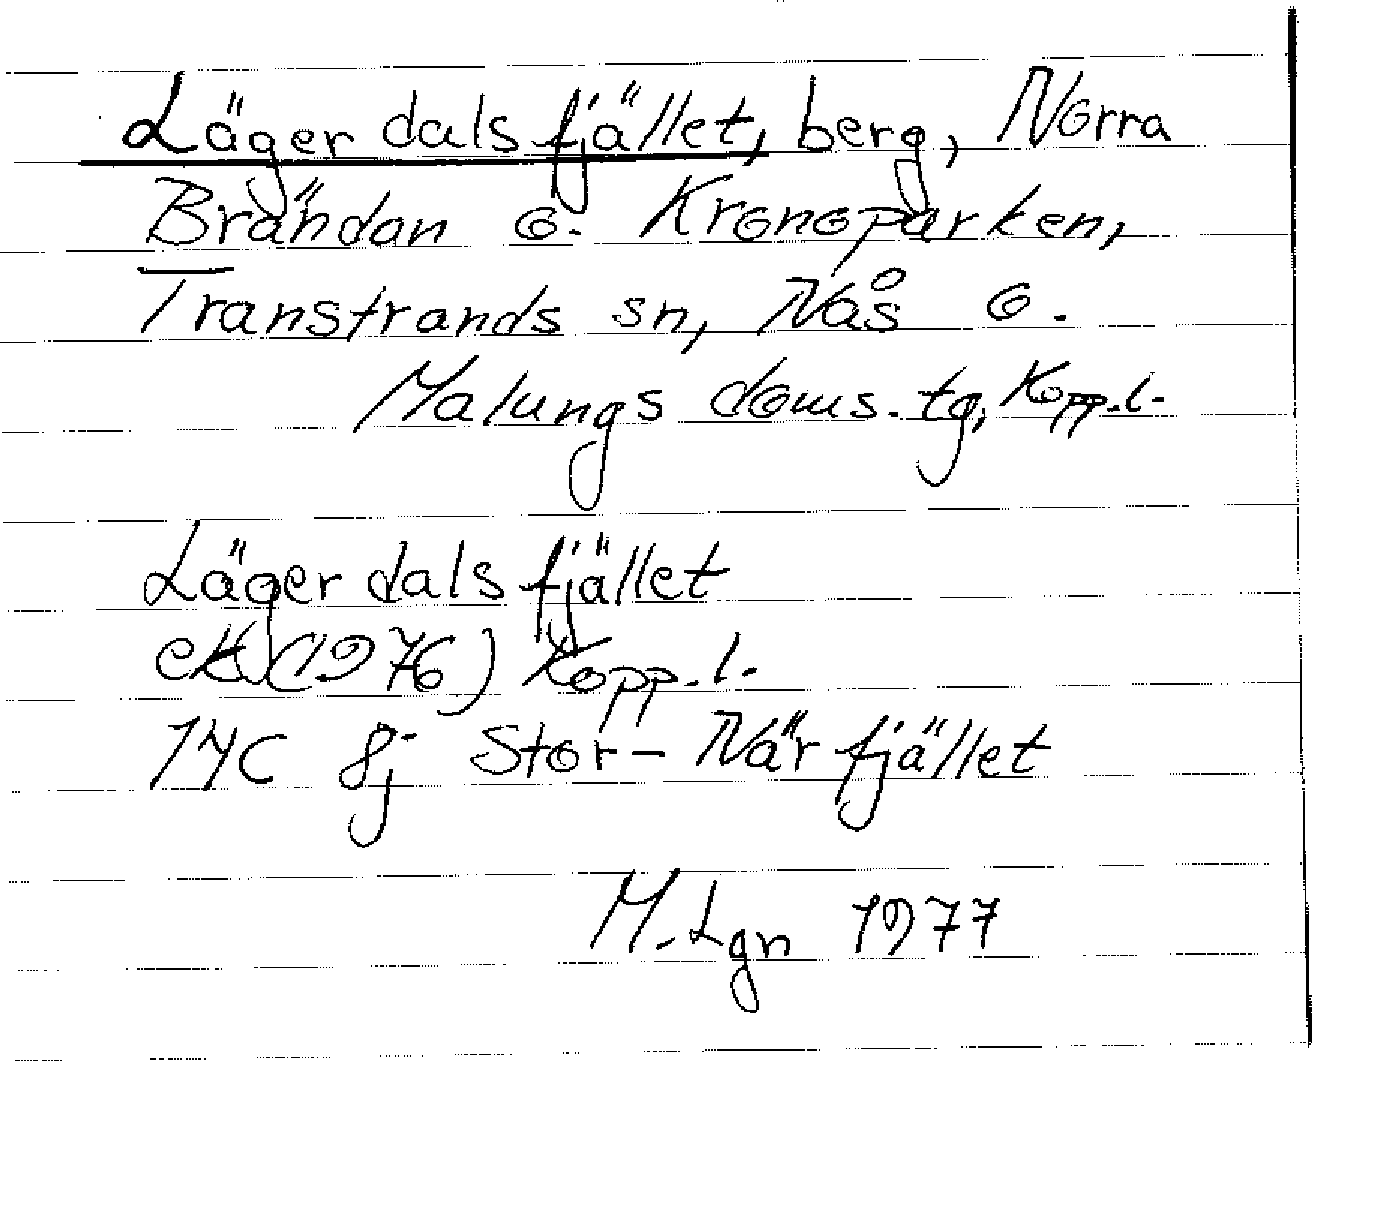 Lägerdalsfjället, berg, Norra
Brändan o. Kronoparken,
Transtrands sn, Nås o.
Malungs doms. tg, Kopp.l.
Lägerdalsfjället
ek (1976) Kopp.l.
14C 8j Stor-Närfjället
M. Lgn 1977